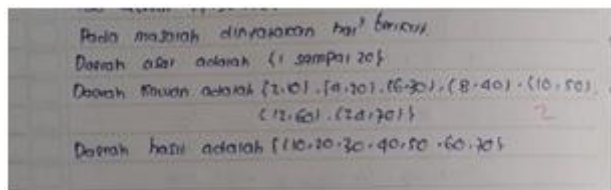 Pada masalah dinyatakan hal² berikut
Daerah asal adalah {1 sampai 20}
Daerah kawan adalah {2.10}.(4.20).(6.30).(8.40).(10.50).
(12.60).(24.70)}
2
Daerah hasil adalah {(10.20.30.40.50.60.70}